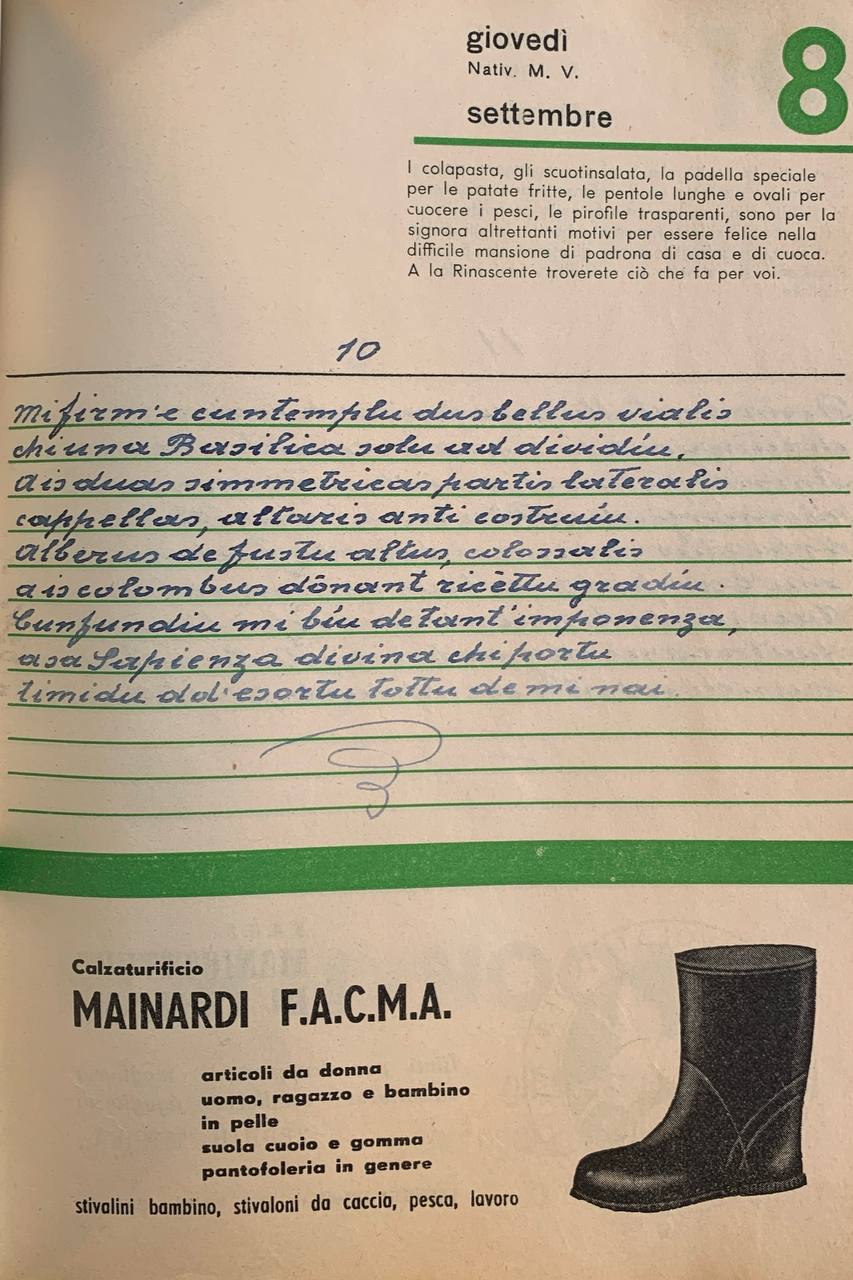 giovedì
Nativ. M. V.
settembre
8
I colapasta, gli scuotinsalata, la padella speciale
per le patate fritte, le pentole lunghe e ovali per
cuocere i pesci, le pirofile trasparenti, sono per la
signora altrettanti motivi per essere felice nella
difficile mansione di padrona di casa e di cuoca.
A la Rinascente troverete ciò che fa per voi.
10
Mi firm'e cuntemplu dus bellus vialis
chi una Basilica solu ad dividíu,
ais duas simmetricas partis lateralis
cappellas, altaris anti costruíu.
Alberus de fustu altus, colossalis
a is colombus dônant ricèttu gradíu.
Cunfundiu mi bíu de tant'imponenza,
a sa Sapienza divina chi portu
timidu dol'esortu tottu de mi nai.
Calzaturificio
MAINARDI F.A.C.M.A.
articoli da donna
uomo, ragazzo e bambino
in pelle
suola cuoio e gomma
pantofoleria in genere
stivalini bambino, stivaloni da caccia, pesca, lavoro